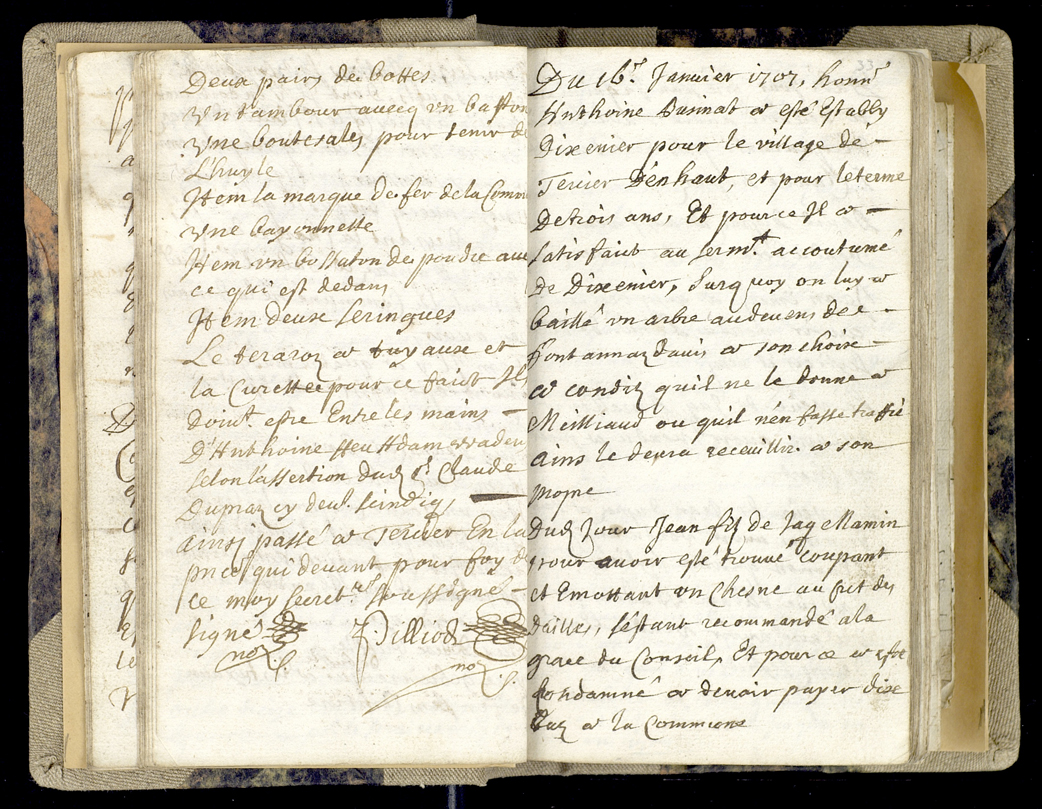 Deux pairs de bottes
Vn tambour auecq vn baston
Vne boutesales pour tenir de
L'huyle
Item la marque de fer de la Comm
Vne bayonnette
Item vn bossaton de poudre aue
ce qui est dedans
Item deux seringues
Le teraroz a tuyaux et
la Curettee pour ce faict
Doiu.t estre Entre les mains
D'Anthoine ffeu Adam
selon l'assertion dud. Sr Claude
Dupraz cy deu.t scindiq
ainsi passé a Tercier En la
pnce qui deuant pour foy d
ce moy secret.re soussigné
signé
not.
Pilliod
not.
Du 16.e Janvier 1707, honn.
Anthoine Businat a esté Estably
Dixenier pour le village de
Tercier D'enhaut, et pour le terme
De trois ans, Et pour ce Il a
satisfaict au serm.t accoutumé
De Dixenier, surquoy on luy a
baillé vn arbre audeuens de
font annaz dauis a son choix
a condi.. quil ne le donne a
Meilliaud ou quil n'en fasse traffic
ains le deura receuillir a son
propre
Dud. Jour Jean filz de Jaq Mamin
pour auoir esté trouué coupant
et Emottant vn Chesne au fict des
Dailles, s'estant recommandé a la
grace du Conseil, Et pour ce a esté
Condamné a deuoir payer dixe
a la Commune